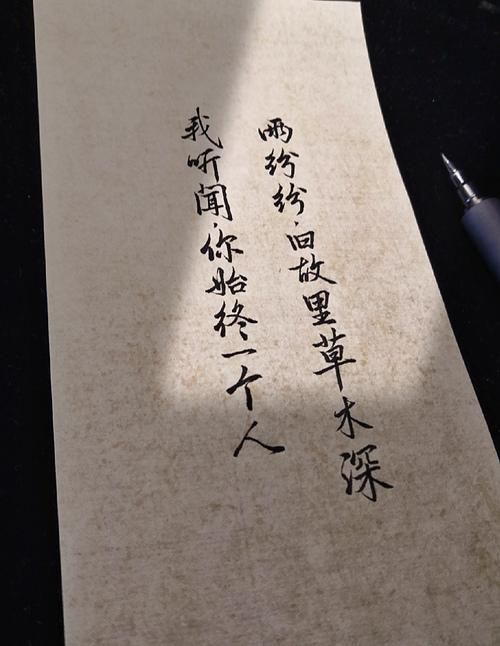 雨纷纷,旧故里草木深
我听闻,你始终一个人